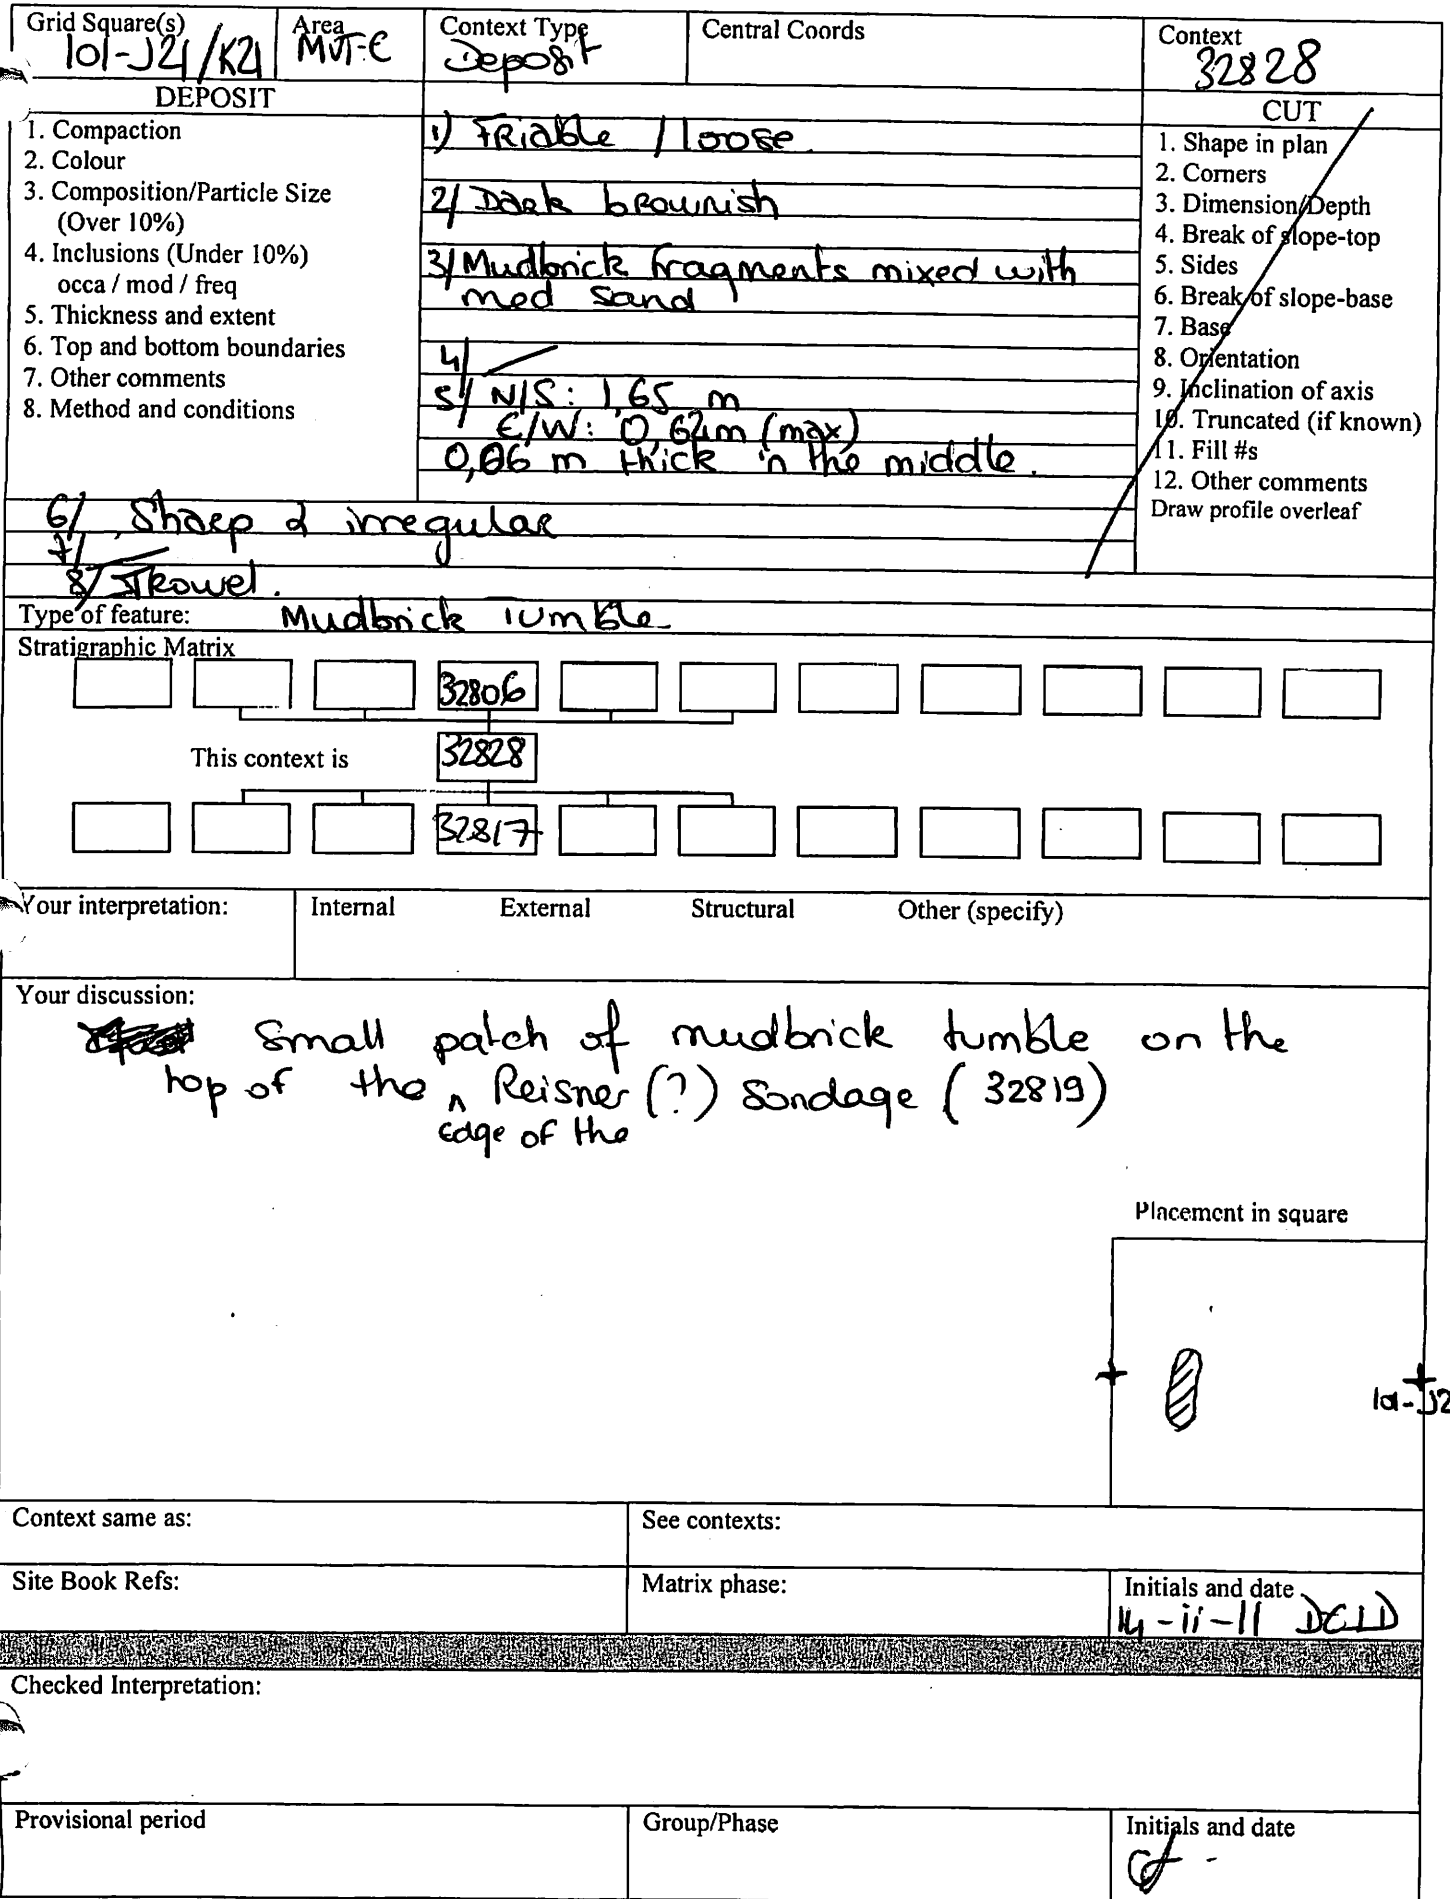 Grid Square(s) Area Context Type Central Coords Context
101-J21/K21 MVT-E Deposit 32828
DEPOSIT CUT
1. Compaction
2. Colour
3. Composition/Particle Size
(Over 10%)
4. Inclusions (Under 10%)
occa / mod / freq
5. Thickness and extent
6. Top and bottom boundaries
7. Other comments
8. Method and conditions
1) Friable / loose.
2/ Dark brownish
3/ Mudbrick fragments mixed with
med sand
4/
5/ N/S: 1,65 m
E/W: 0,62m (max)
0,06 m thick in the middle.
6/ Sharp & irregular
7/
8/ Trowel.
1. Shape in plan
2. Corners
3. Dimension/Depth
4. Break of slope-top
5. Sides
6. Break of slope-base
7. Base
8. Orientation
9. Inclination of axis
10. Truncated (if known)
11. Fill #s
12. Other comments
Draw profile overleaf
Type of feature: Mudbrick Tumble
Stratigraphic Matrix
32806
This context is 32828
32817
Your interpretation: Internal External Structural Other (specify)
Your discussion:
Small patch of mudbrick tumble on the
top of the ^ Reisner (?) Sondage (32819)
Edge of the
Placement in square
101-J2
Context same as: See contexts:
Site Book Refs: Matrix phase: Initials and date
14-ii-11 DELD
Checked Interpretation:
Provisional period Group/Phase Initials and date